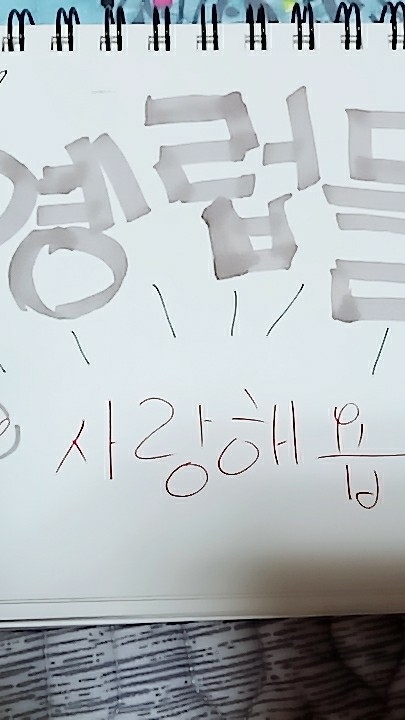 영럽들
사랑해